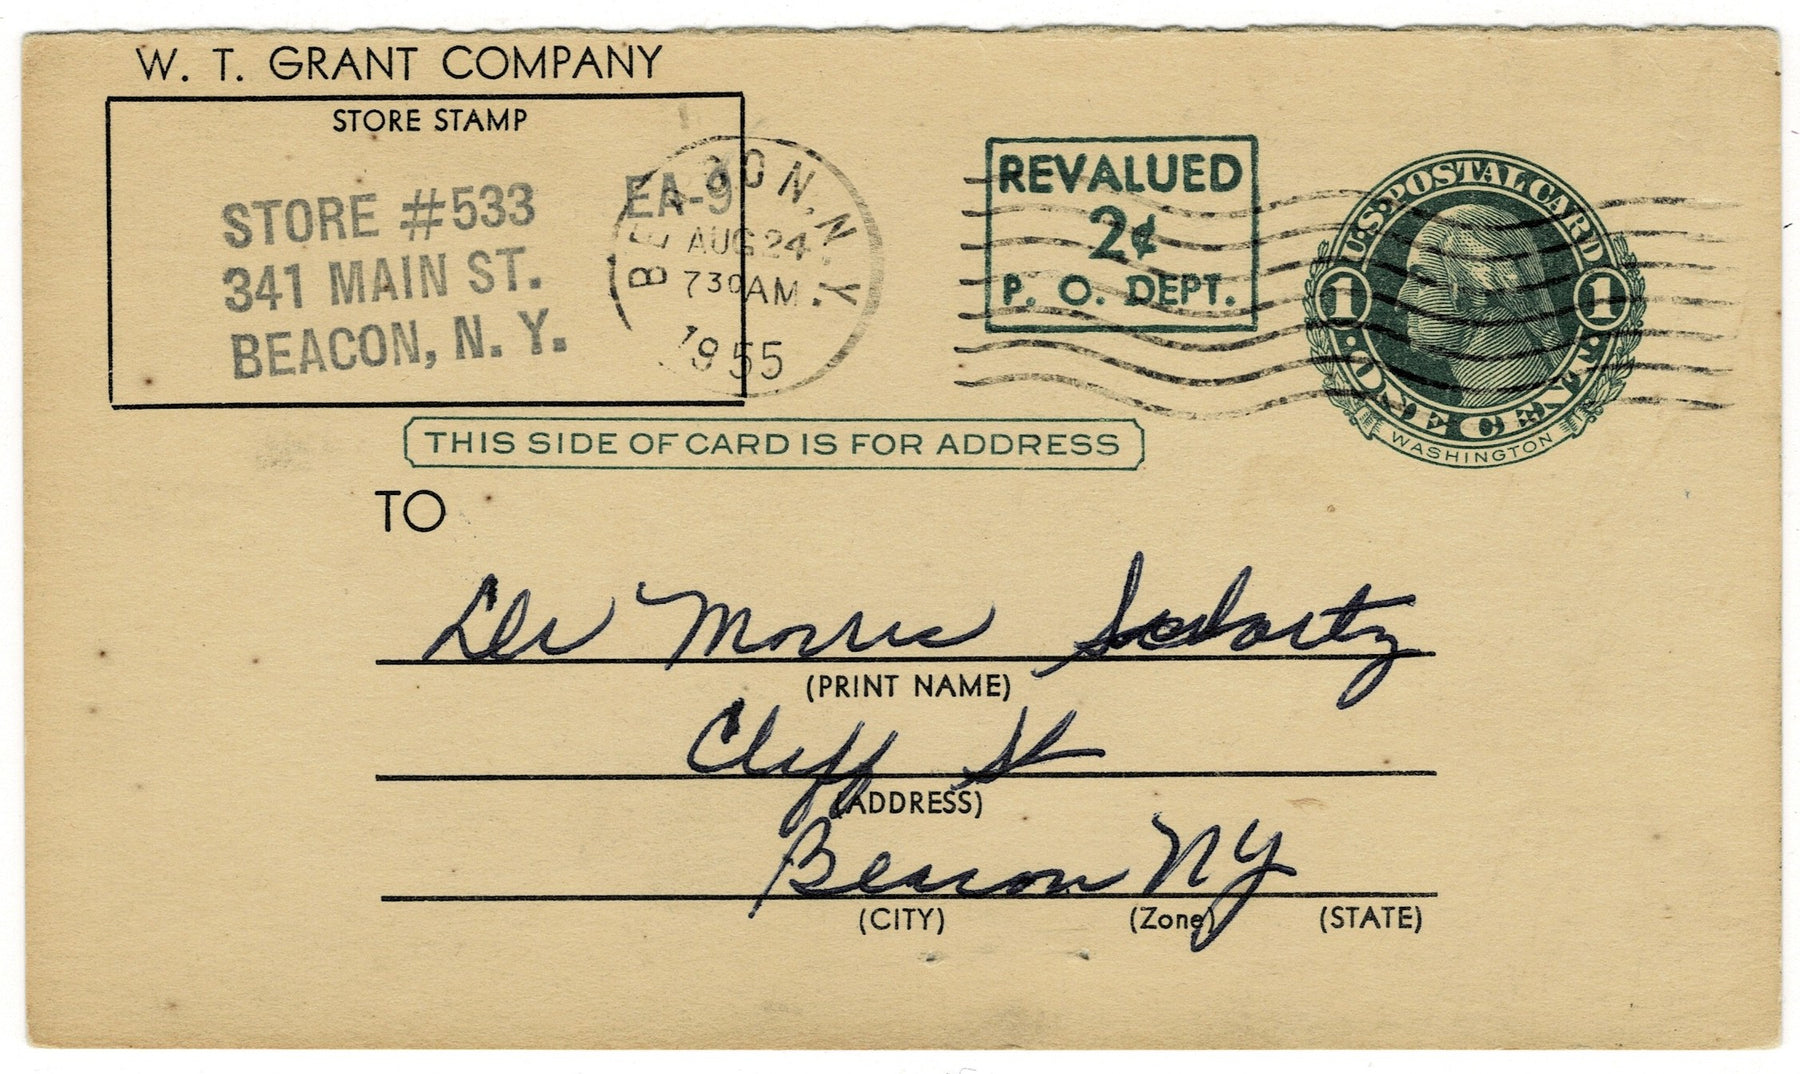 W. T. GRANT COMPANY
STORE STAMP
STORE #533 EA-9
341 MAIN ST.
BEACON, N. Y.
BEACON, N.Y.
AUG 24
730AM
1955
REVALUED
2¢
P. O. DEPT.
U.S. POSTAL CARD
1 1
ONE CENT
WASHINGTON
THIS SIDE OF CARD IS FOR ADDRESS
TO
Morris
(PRINT NAME)
Cliff St
(ADDRESS)
Beacon NY
(CITY) (Zone) (STATE)